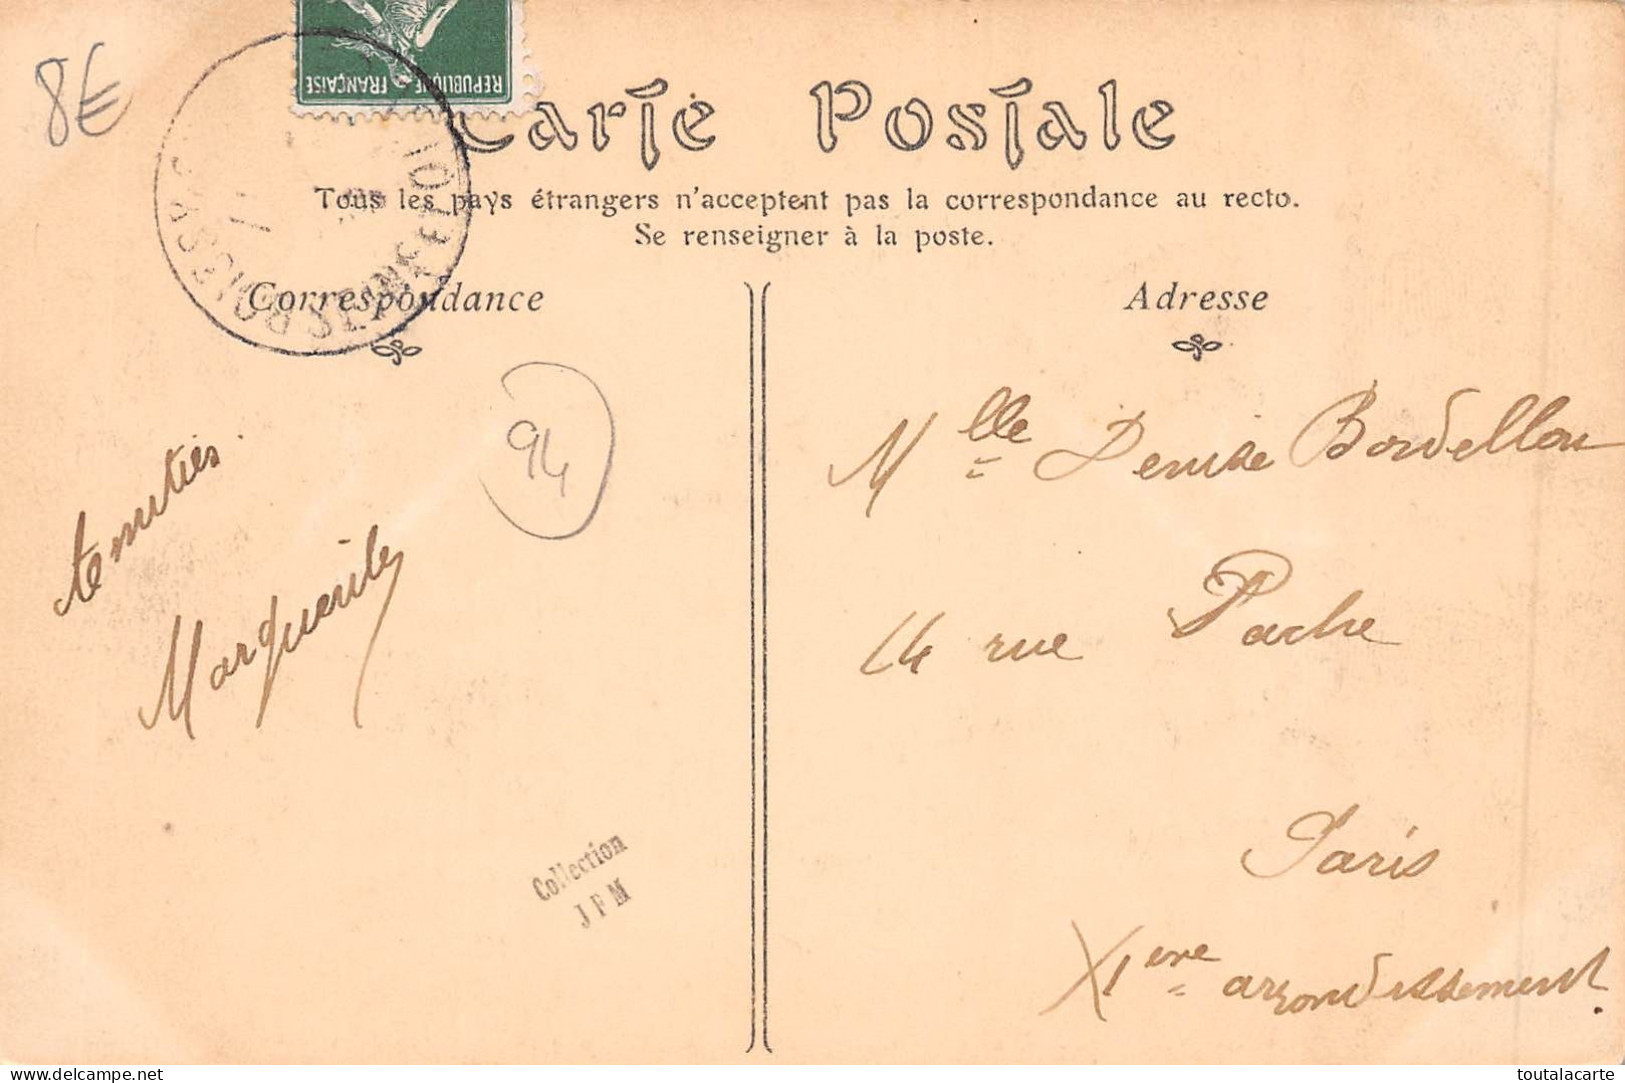 8€
REPUBLIQUE FRANÇAISE
Carte Postale
Tous les pays étrangers n'acceptent pas la correspondance au recto.
Se renseigner à la poste.
BOISSY ST
Correspondance
Adresse
94
amitiés.
Marguerite
Mlle Denise Bordellou
14 rue Pache
Paris
XIeme arrondissement.
Collection
J F M
delcampe.net
toutalacarte